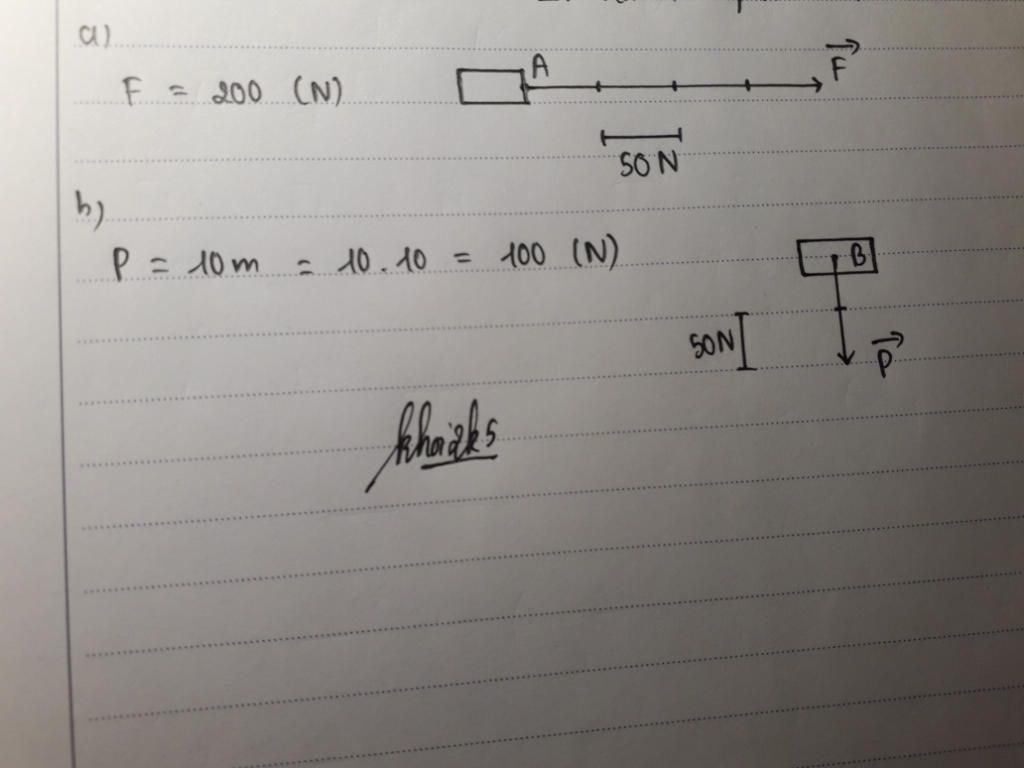 a)
F = 200 (N)
A
F
50 N
b)
P = 10m = 10.10 = 100 (N)
B
50N
P